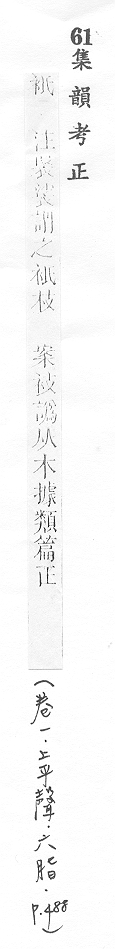 61集韻考正
衹 注袈裟謂之衹枝 案枝譌从木據類篇正
(卷一.上平聲.六脂.P.488)